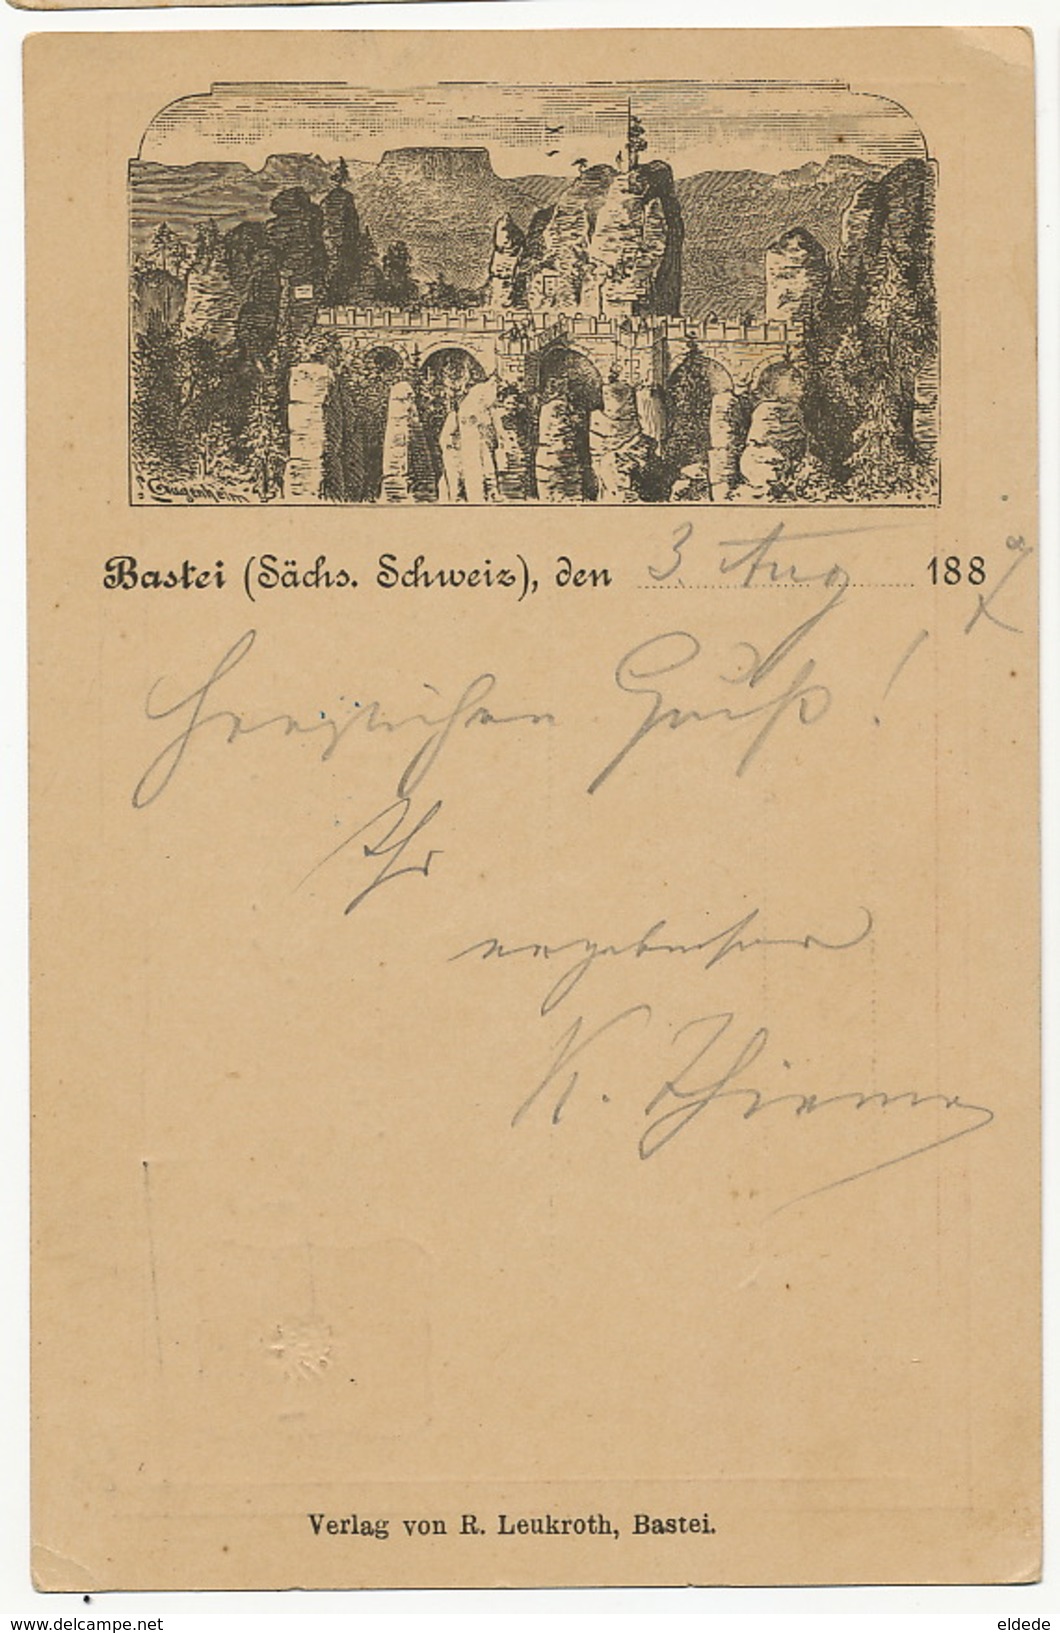 Guggenheim
Bastei (Sächs. Schweiz), den 3. Aug 188
Herzlichen Gruß!
Ihr
ergebenster
K. Thieme
Verlag von R. Leukroth, Bastei.
delcampe.net
eldede